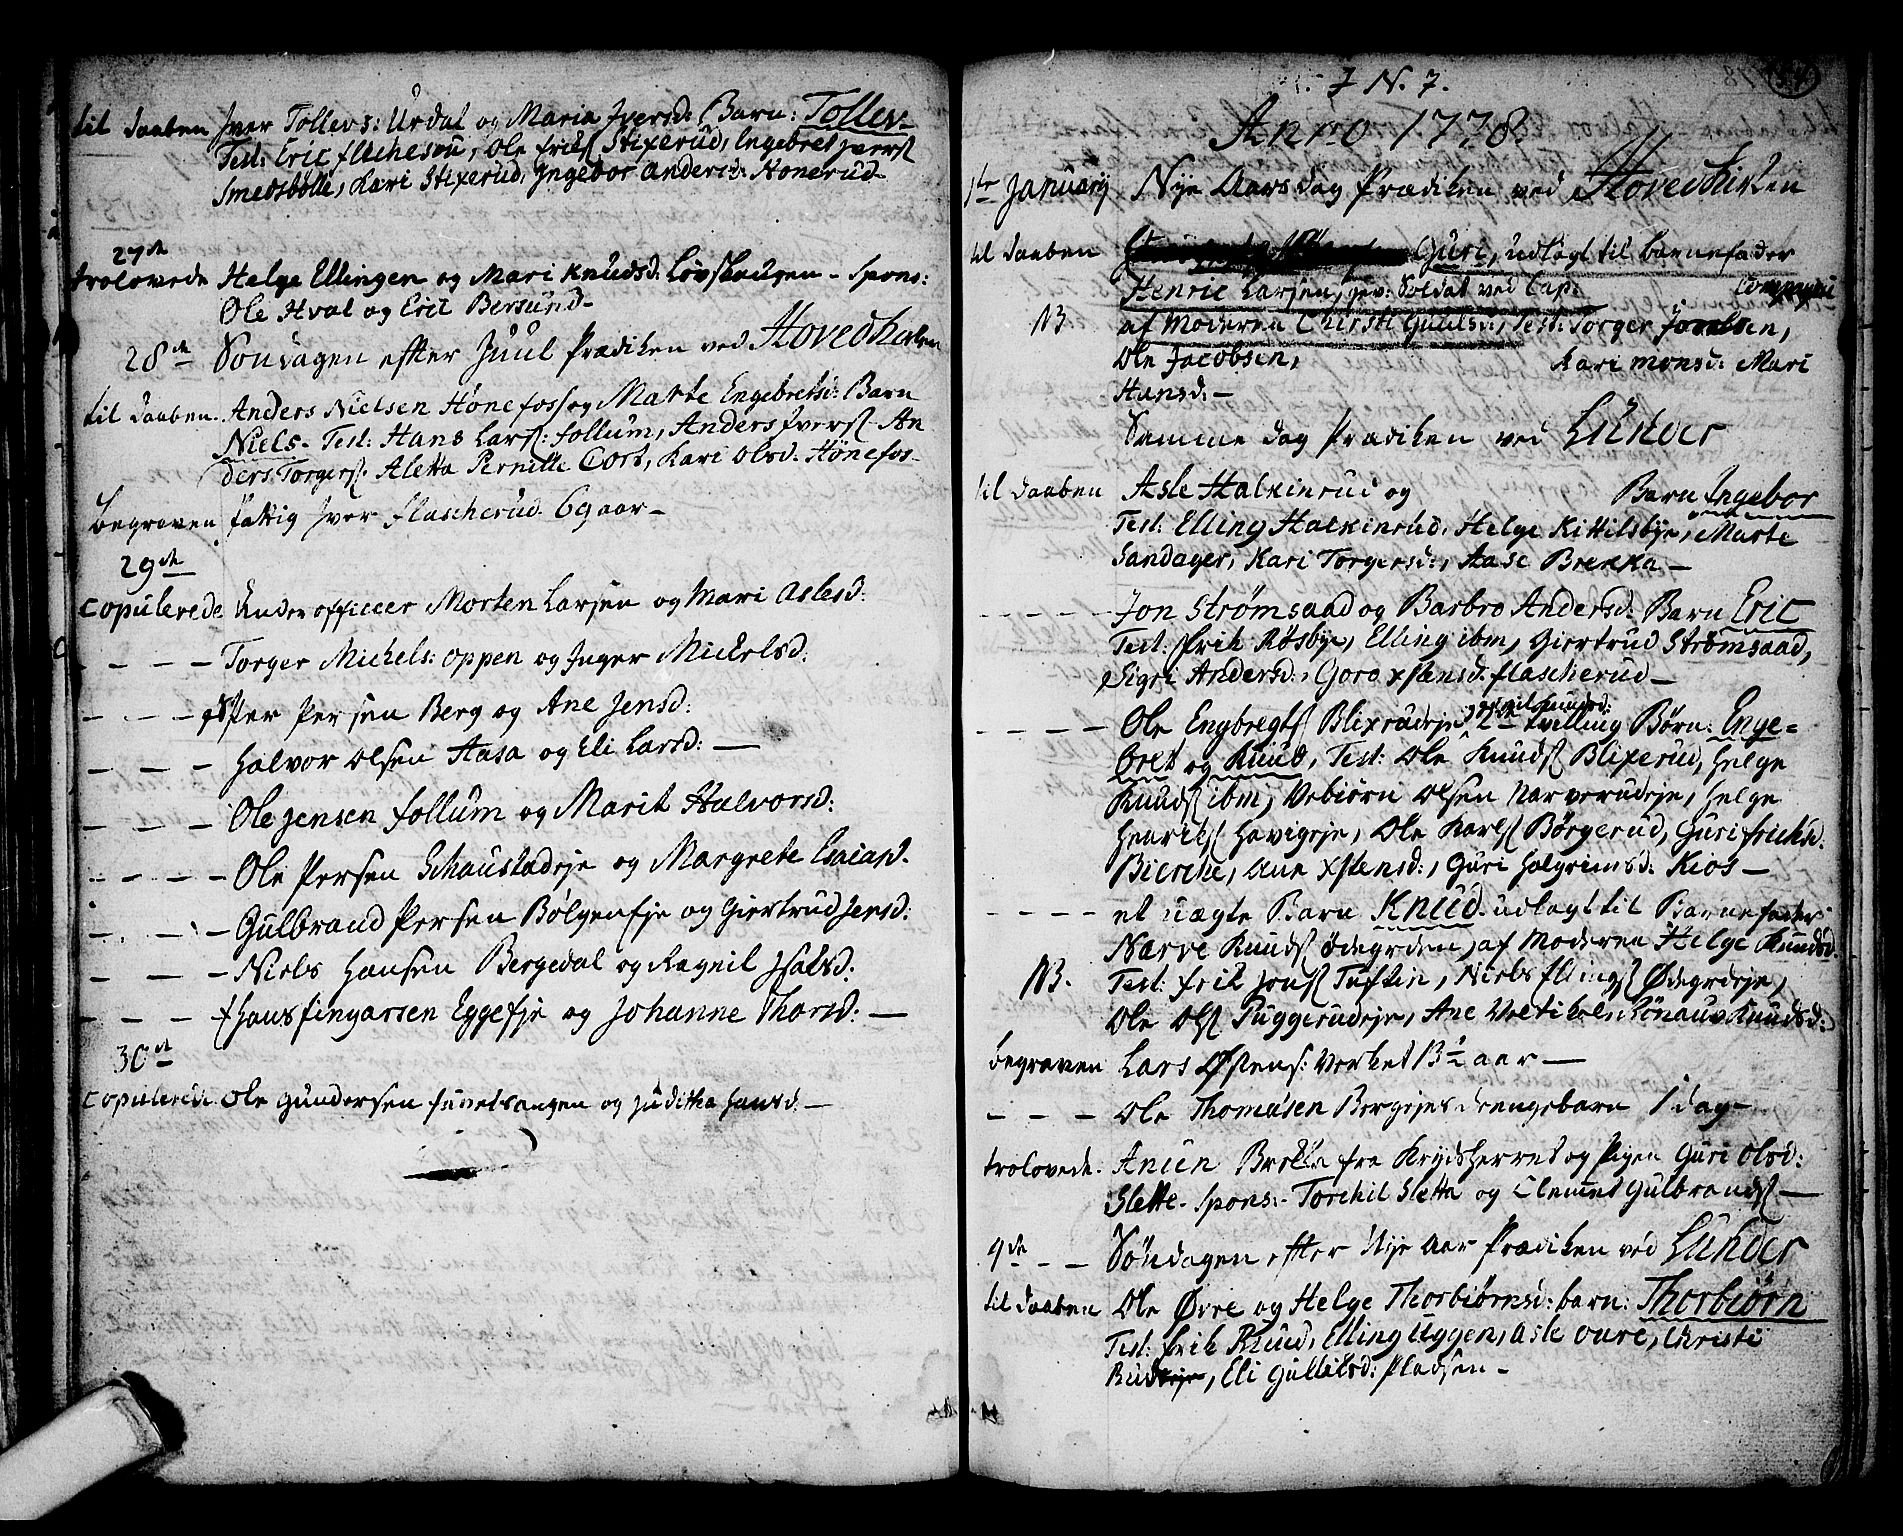 til daaben Iver Tollevs: Urdal og Maria Iversd: Barn: Tollev-
Test: Eric flaskesøu, Ole Eriks Stixerud, Engebret Ivers
Smedsbølle, Kari Stixerud, Ingebor Andersd: Honerud-
27de
trolovede Helge Ellingen og Mari Knudsd: Løvshaugen - Spons:
Ole Hval og Eric Bersund-
28de Søndagen efter Juul Prædiken ved Hovedkirken
til daaben. Anders Nielsen Hønefoss og Marte Engebretsd: Barn
Niels- Test: Hans Lars: follum, Anders Ivers An
ders Torgers Aletta Pernille Cort, Kari Olsd. Hønefos-
begraven fattig Iver flascherud 69 aar-
29de
copulerede Underofficeer Morten Larsen og Mari Aslesd:
- - - Torger Michels: Oppen og Inger Mickelsd.
- - - Per Persen Berg og Ane Jensd:
- - - Halvor Olsen Aasa og Eli Larsd: -
- - - Ole Jensen follum og Marit Halvorsd:
- - - Ole Persen Schaustadeje og Margrete Esaiasd.
- - - Gulbrand Persen Bølgen Eje og Giertrud Jensd:
- - - Niels Hansen Bergedal og Ragnil
- - - Hans fingarsen Eggeeje og Johanne Thorsd: -
30de
copulerede Ole Gundersen og Juditha Hansd: -
I N. 7.
Anno 1778.
1te January Nye Aarsdag Prædiken ved Hovedkirken
til daaben Guri, udlagt til barnefader
Henric Larsen, gev: Soldat ved Cap:
NB af Moderen Christi Test: Torger
Ole Jacobsen, Kari Monsd: Mari
Hansd: -
Samme dag Prædiken ved Lunder
til daaben Asle Halkinrud og Barn Ingebor
Test: Elling Halkinrud, Helge Kittilsbye, Marte
Sandager, Kari Torgersd:, Aase Brekka -
- - - - Jon Strømsaad og Barbro Andersd: Barn Eric
Test: Erik Røsbye, Elling ibm, Giertrud Strømsaad,
Sigri Andersd:, Goro Xstensd. flascherud -
- - - - Ole Engbregts Blixrudeje 2de tvilling Børn: Enge-
bret og Knud, Test: Ole Knuds Blixerud, Helge
Knuds ibm, Vebiørn Olsen Narverudeje, Helge
Henriks Havigeje, Ole Karls Børgerud, Guri fricksd.
Bierche, Ane Xstensd:, Guri Halgrimsd: Kios -
- - - - et uægte Barn Knud. udlagt til Barnefader
Narve Knuds Ødegrden, af Moderen Helge Knudsd.
NB. Test: Erik Jons Tuftin, Niels Ellings Ødegrdeje,
Ole Ols Puggerudeje, Ane Veltikol, Rønauv Knudsd:
begraven Lars Østens: Verket 13½ aar -
- - - Ole Thomasen Bergejes drengebarn 1 dag-
trolovede. Anien Brekka fra Krydsherret og Pigen Guri Olsd:
Slette- Spons:- Torchil Sletta og Clemet Gulbrands -
4de - - Søndagen efter Nye Aar Prædiken ved Lunder
til daaben Ole Øvre og Helge Thorbiørnsd: barn: Thorbiørn
Test: Erik Ruud, Elling Uggen, Asle Oure, Christi
Rudeje, Eli Gullicksd: Pladsen -